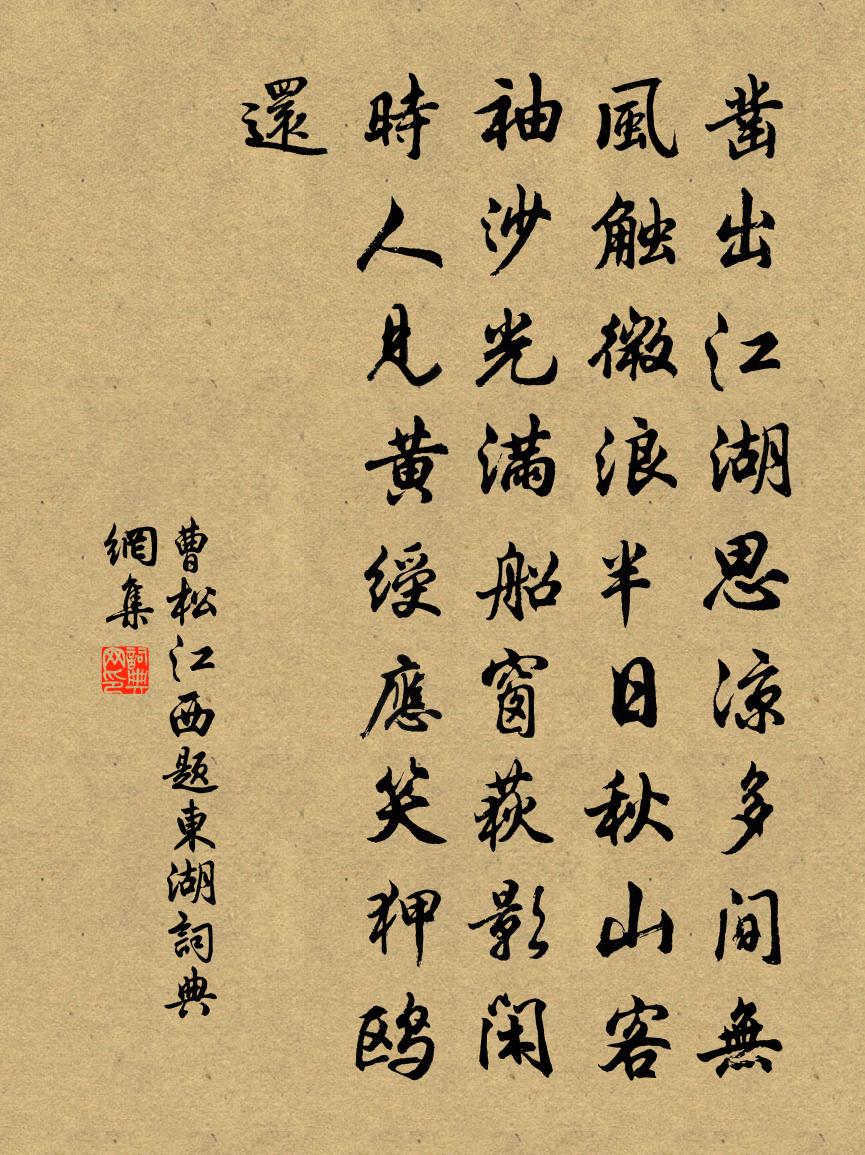 凿出江湖思涼多間無
風触微浪半日秋山客
袖沙光滿船窗荻影閑
時人見黄綬應笑狎鸥
還
曹松江西题東湖詞典
網集
詞典
网印